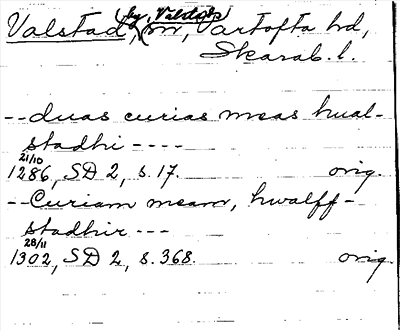 Valstad, (by, Valstads) sn, Vartofta hd,
Skarab. l.
-- duas curias meas hual-
stadhi ----
21/10
1286, SD 2, s. 17. orig.
-- Curiam meam, hwalff-
stadhir ---
28/11
1302, SD 2, s. 368. orig.